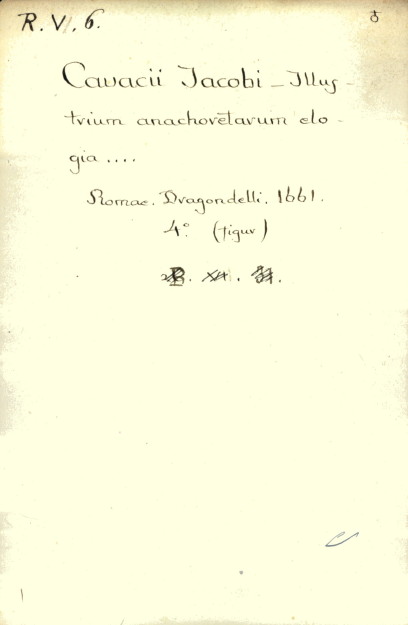 R. V. 6.
Cavacii Jacobi – Illus-
trium anachoretarum elo-
gia ....
Romae. Dragondelli. 1661.
4° (figur)